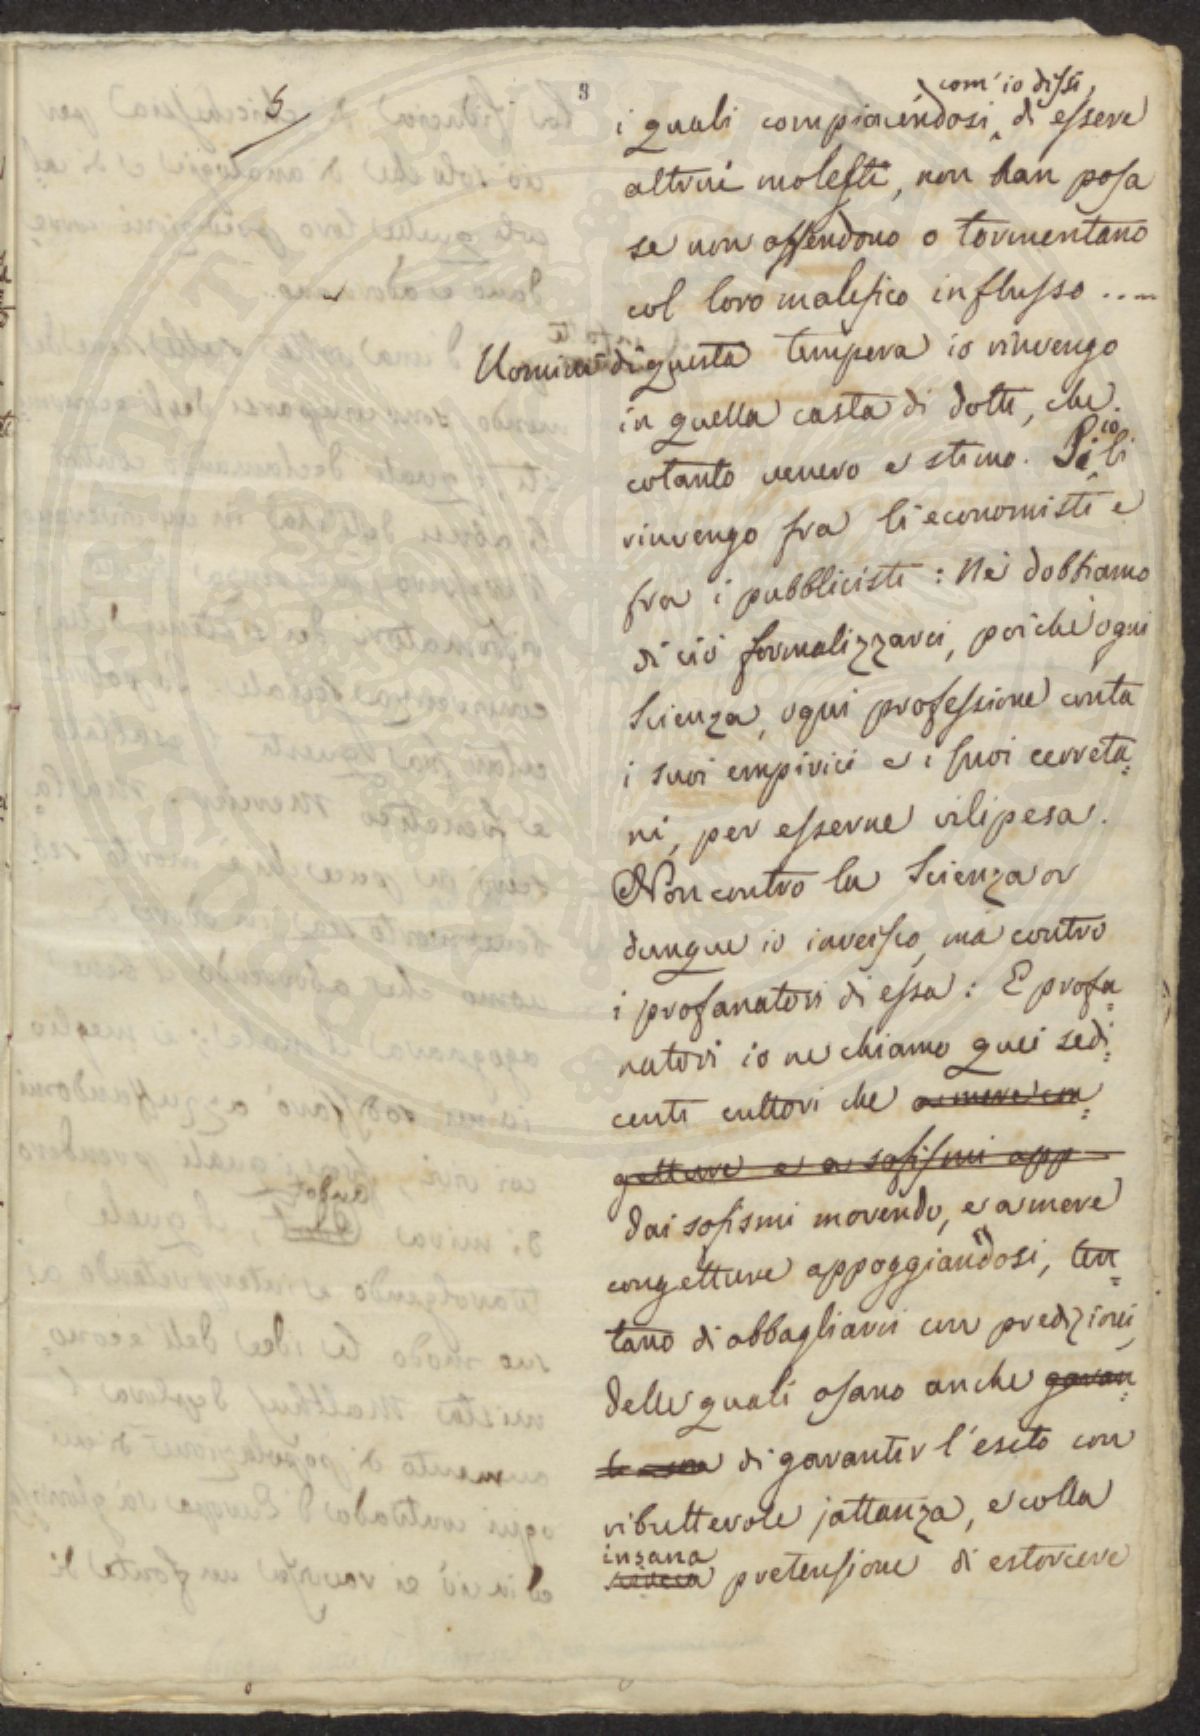 5
3
com' io dissi,
i quali compiacendosi di essere
altrui molesti, non han posa
se non offendono o tormentano
col loro malefico influsso .....
Uomini di questa tempera io rinvengo
in quella casta di dotti, che
cotanto venero e stimo. Sì io li
rinvengo fra li economisti e
fra i pubblicisti: Nè dobbiamo
di ciò formalizzarci, poichè ogni
Scienza, ogni professione conta
i suoi empirici e i suoi cerreta=
ni, per esserne vilipesa.
Non contro la Scienza or
dunque io inveisco, ma contro
i profanatori di essa: E profa=
natori io ne chiamo quei sedi=
centi cultori che a mere con=
getture e a sofismi app
dai sofismi movendo, e a mere
congetture appoggiandosi, ten=
tano di abbagliarci con predizioni,
delle quali osano anche garan=
di garantir l'esito con
ributtevole jattanza, e colla
insana
pretensione di estorcere